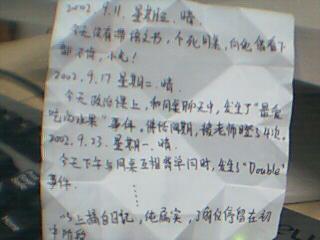 2002.9.11. 星期三. 晴.
今天没有带语文书,个死同桌,向他借看下
都不肯,小气!
2002.9.17. 星期二. 晴.
今天政治课上,和同桌聊天中,发生了“最爱
吃的水果”事件,
被老师瞪3 4次.
2002.9.23. 星期一. 晴.
今天下午与同桌互相骂单词时,发生了“Double”
事件.
......
以上摘自日记,纯属实,了
仅停留在初
阶段